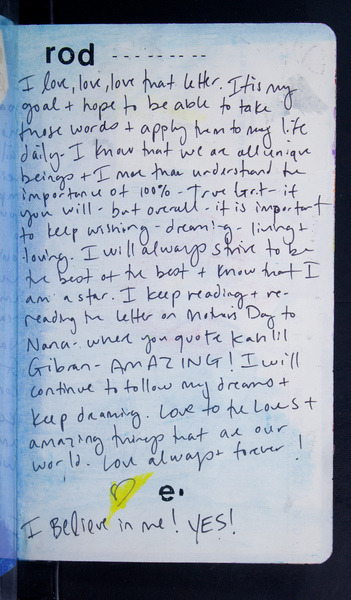 rod ----------
I love, love, love that letter. It is my
goal + hope to be able to take
those words + apply them to my life
daily - I know that we are all unique
beings + I more than understand the
importance of 100% - True Grit - if
you will - but overall - it is important
to keep wishing - dreaming - living +
loving. I will always strive to be
the best of the best + know that I
am a star. I keep reading + re-
reading the letter on Mothers Day to
Nana - where you quote Kahlil
Gibran - AMAZING! I will
continue to follow my dreams +
keep dreaming. Love to the Loves +
amazing things that are our
world. Love always + forever!
e.
I Believe in me! YES!